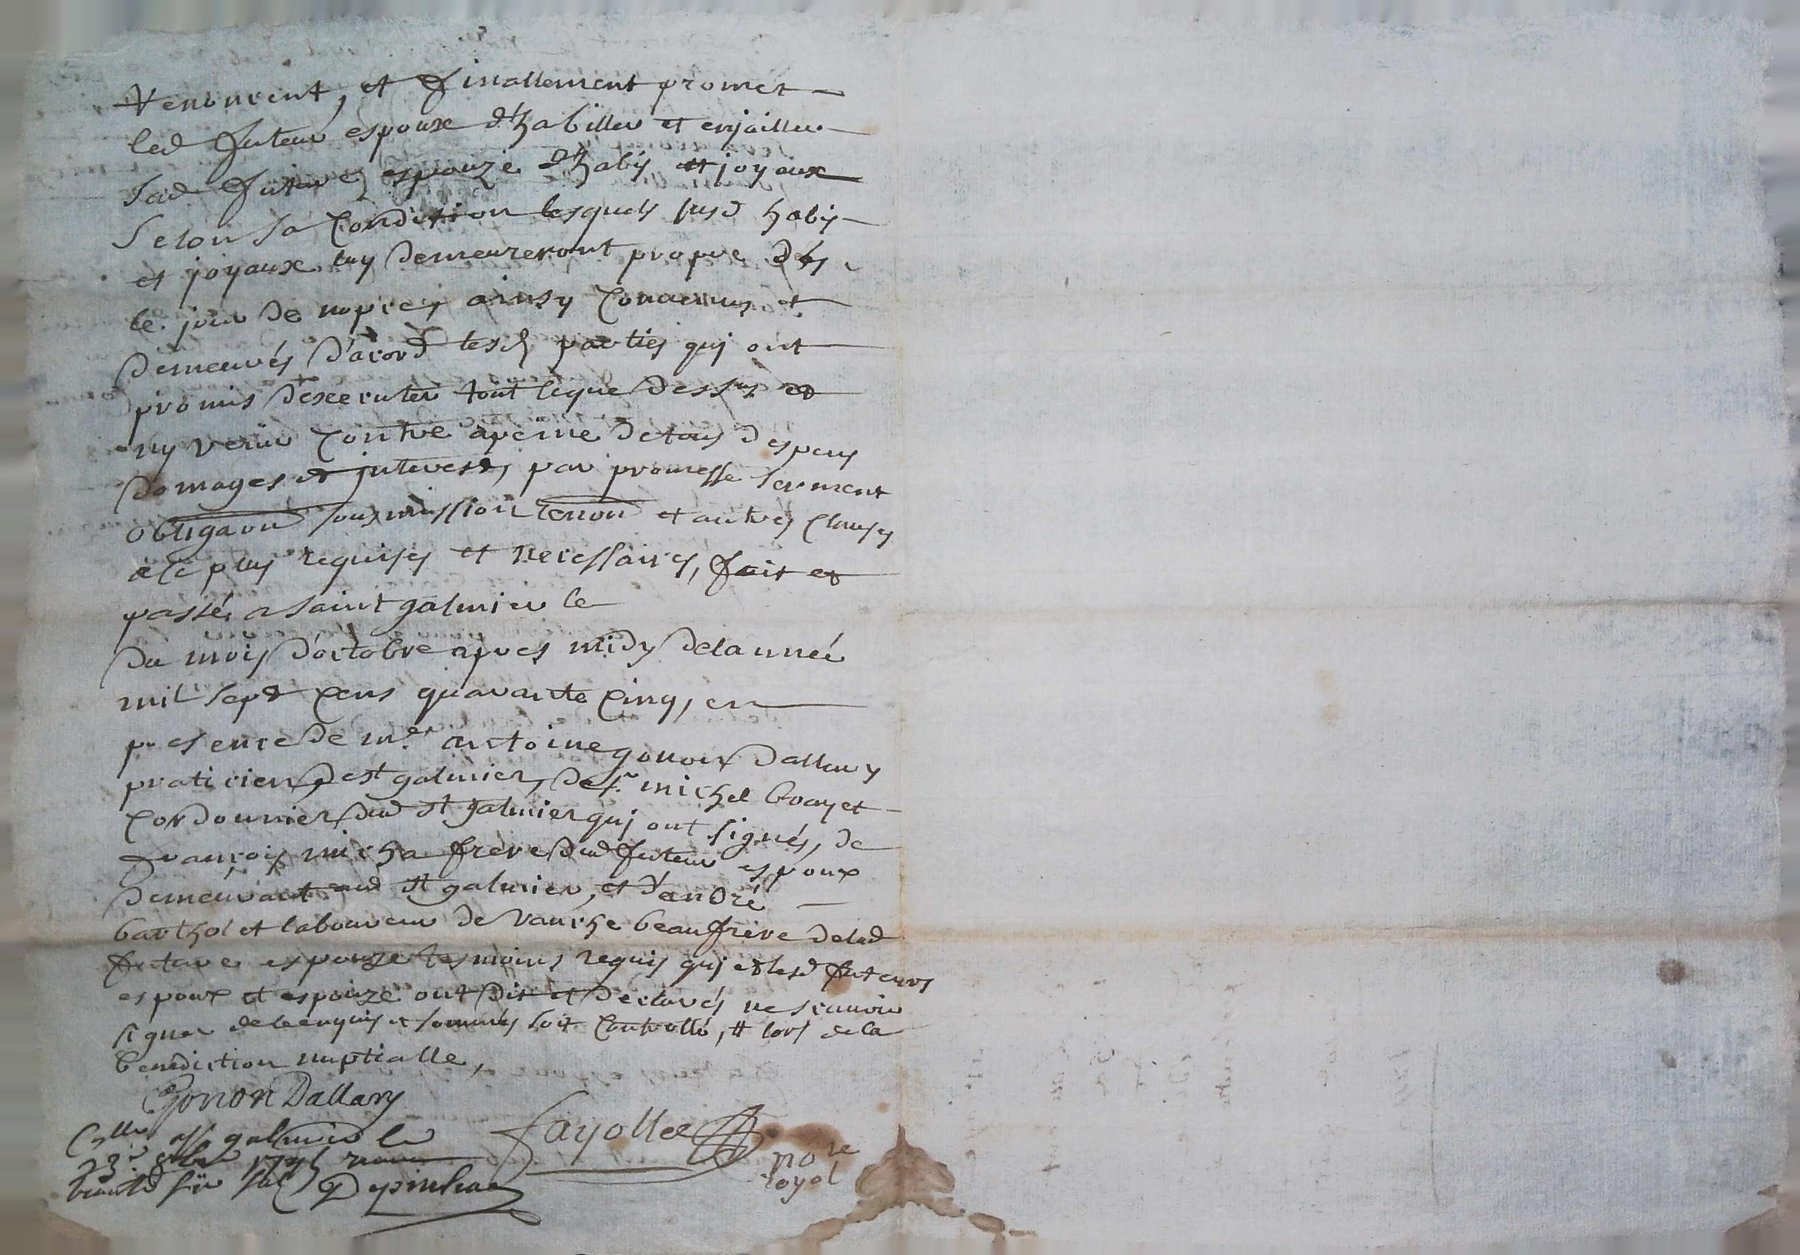 renoncent, et finallement promet
led futeur espoux d'habiller et enjailler
sad. future espouze d'habis et joyaux
selon sa condition lesquels susd habis
et joyaux luy demeureront propre dés
le jour de nopces ainsy convenus et
demeurés d'acord lesd parties qui ont
promis d'exécuter tout ceque dessus et
ny venir contre apeine de tous despens
domages et interests, par promesse serment
obligaon soubmission renon et autres clauses
à ce plus requises et necessaires, fait et
passé a saint galmier le
du mois d'octobre apres midy de lannée
mil sept cens quarante cinq, en
presence de me antoine gonon dallary
praticien de st galmier, de sr michel boayet
cordonnier dud st galmier qui ont signés, de
françois micha frere dud futeur espoux
demeurant aud st galmier, et d'andré
barthol et laboureur de vauche beaufrère delad
future espouze tesmoins requis qui et lesd futeurs
espoux et espouze ont dit et déclarés ne scavoir
signer de ce enquis et sommés soit controllé, # lors de la
benediction nuptialle,
Gonon Dallary
Cllé a st galmier le
23e 8bre 1745
Fayolle
nore
royal